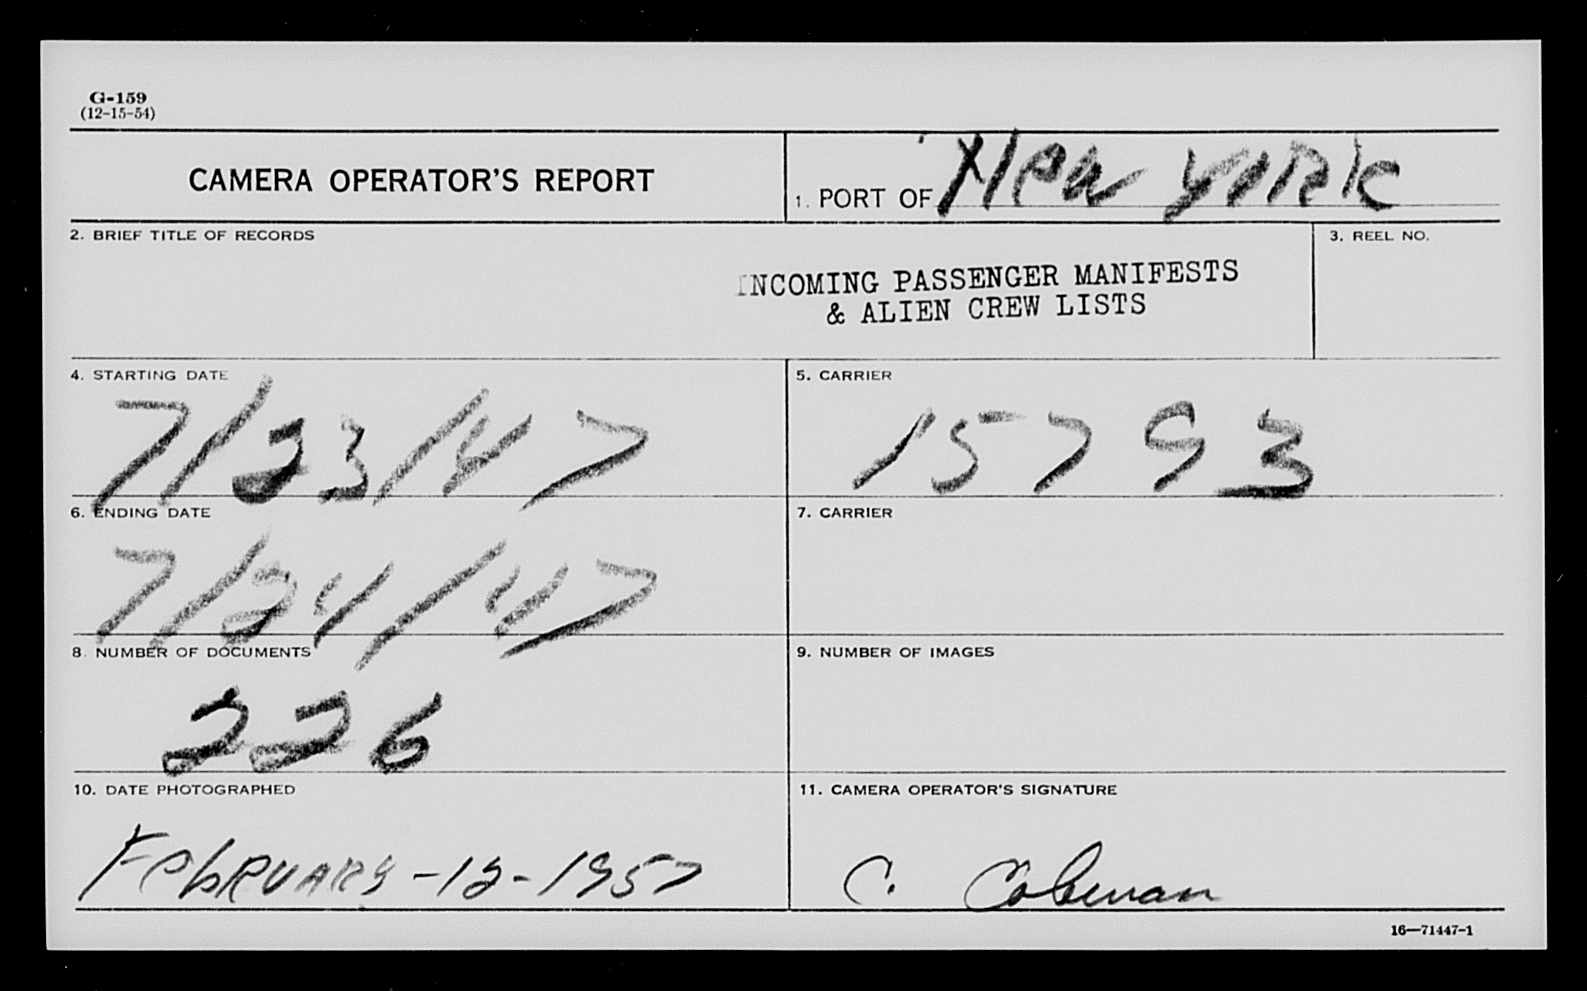 G-159
(12-15-54)
CAMERA OPERATOR'S REPORT
1. PORT OF New YORK
2. BRIEF TITLE OF RECORDS
3. REEL NO.
INCOMING PASSENGER MANIFESTS
& ALIEN CREW LISTS
4. STARTING DATE
7/23/47
5. CARRIER
15793
6. ENDING DATE
7/24/47
7. CARRIER
8. NUMBER OF DOCUMENTS
226
9. NUMBER OF IMAGES
10. DATE PHOTOGRAPHED
FebRUARy-12-1957
11. CAMERA OPERATOR'S SIGNATURE
C. Coleman
16—71447-1